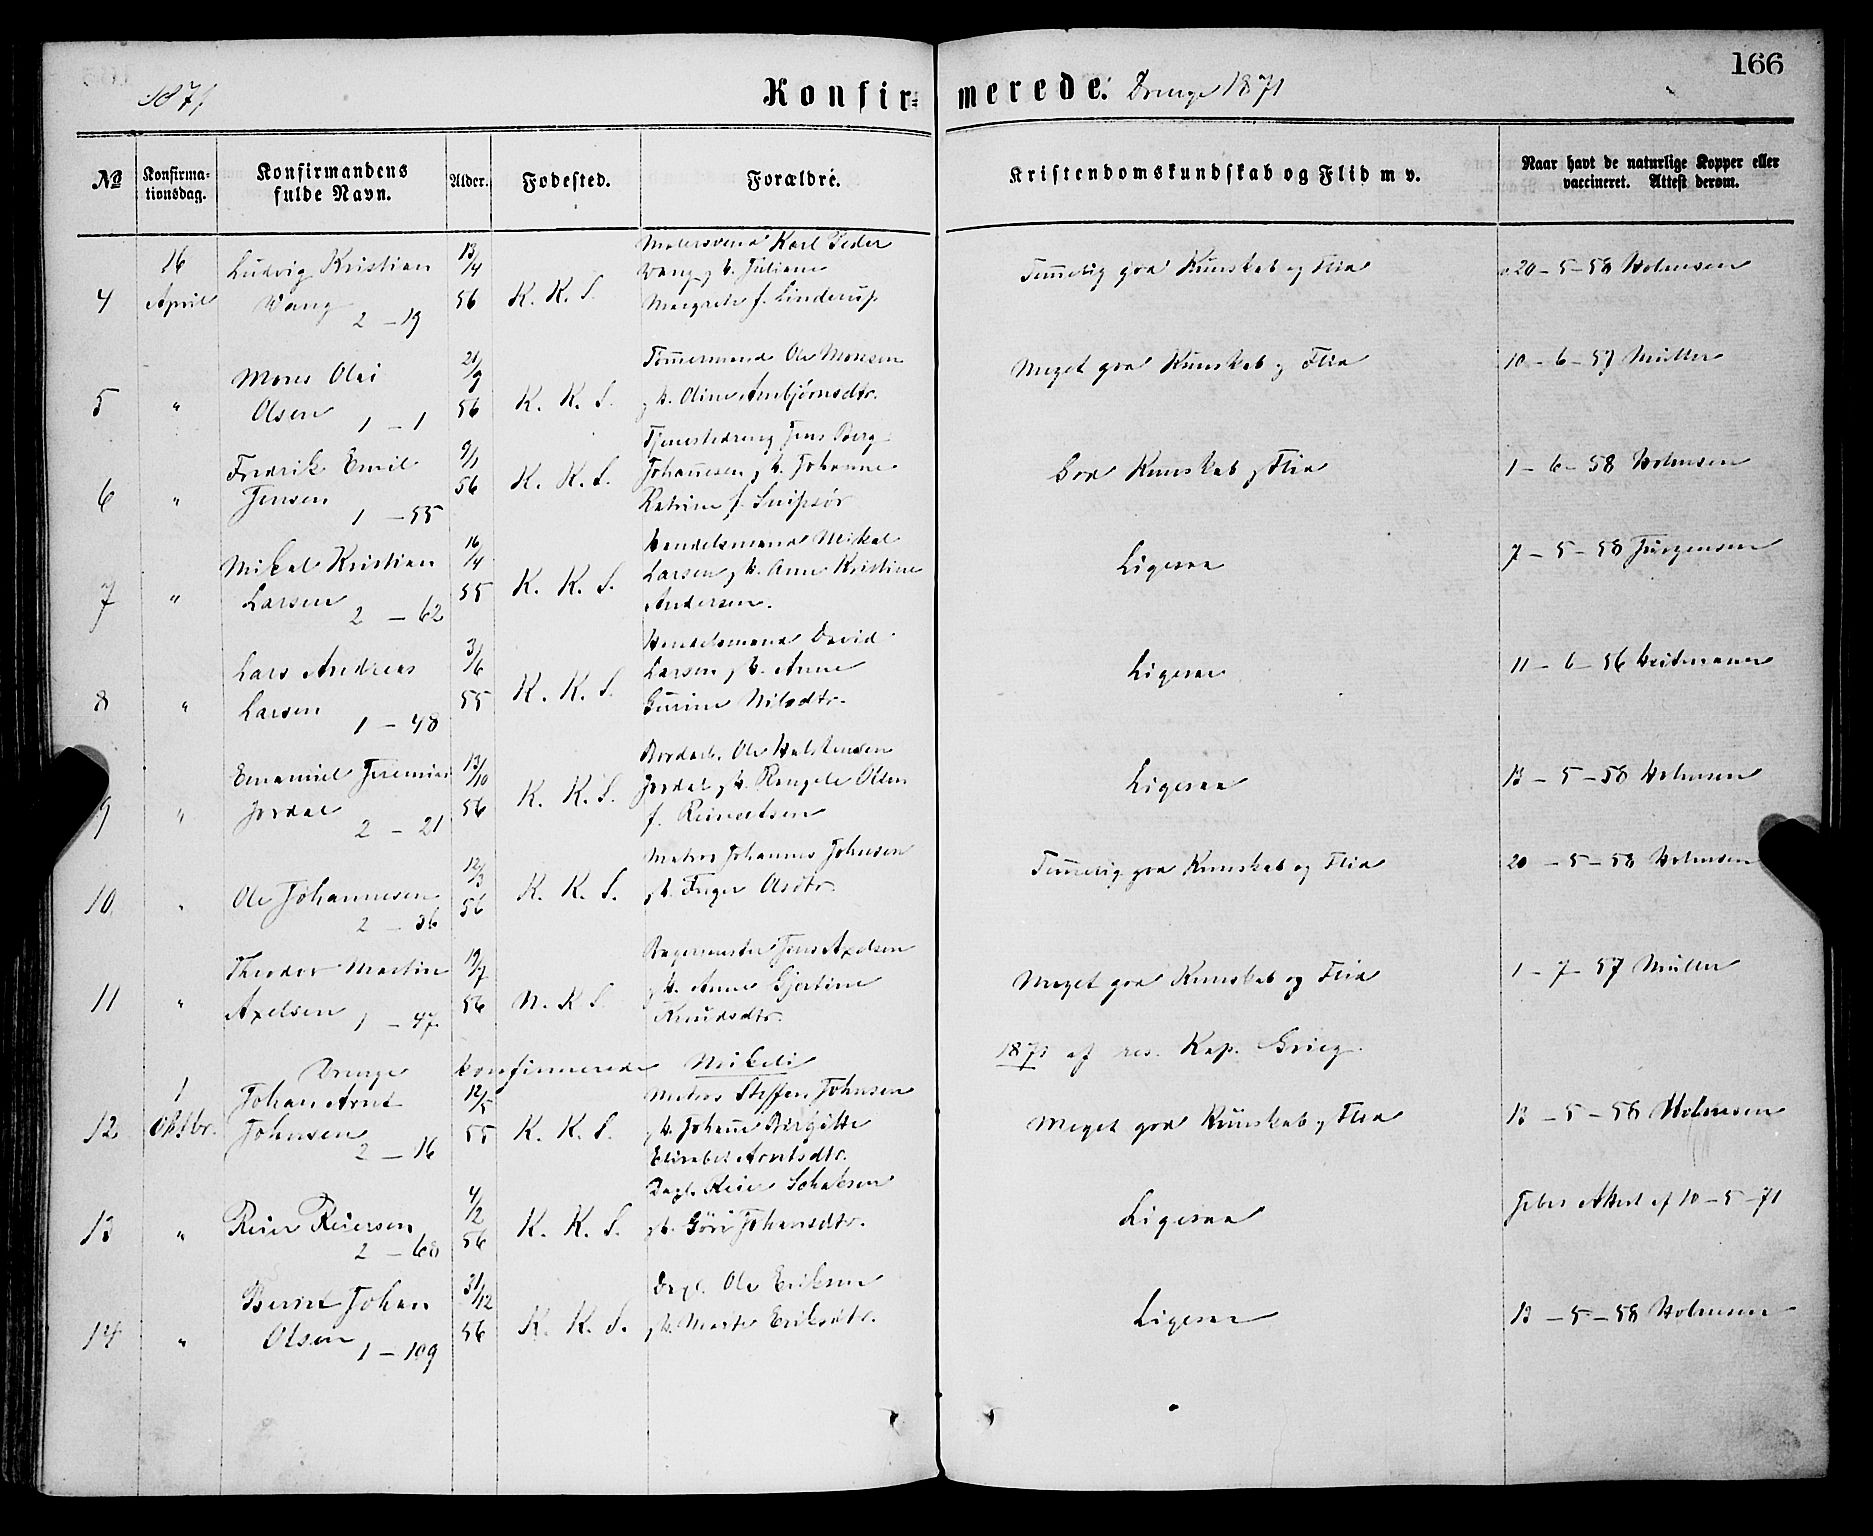 166
1871
Konfir=merede. Drenge 1871
No
Konfirma-
tionsdag.
Konfirmandens
fulde Navn.
Alder.
Fødested.
Forældre.
Kristendomskundskab og Flid m v.
Naar havt de naturlige Kopper eller
vaccineret. Attest derom.
4 16 April
Ludvig Kristian
Wang 2 – 19
13/4 56
K. K. S.
Malersvend Karl Peder
Wang og H. Juliane
Margrete f. Linderup
Temmelig god Kunskab og Flid
20 – 5 – 58 Holmsen
5 "
Mons Olai
Olsen 1 – 1
21/9 56
K. K. S.
Tømmermand Ole Monsen
og H. Oline Anbjørnsdtr.
Meget god Kunskab og Flid
10 – 6 – 57 Müller
6 "
Fredrik Emil
Jensen 1 – 55
9/1 56
K. K. S.
Tjenestedreng Jens Berg
Johannesen og H. Johanne
Katrine f.
God Kunskab og Flid
1 – 6 – 58 Holmsen
7 "
Mikal Kristian
Larsen 2 – 62
16/4 55
K. K. S.
Handelsmand Mikal
Larsen og H. Anne Kristine
Andersen.
Ligesaa
7 – 5 – 58 Jürgensen
8 "
Lars Andreas
Larsen 1 – 48
3/6 55
K. K. S.
Handelsmand David
Larsen og H. Anne
Gurine Nilsdtr.
Ligesaa
11 – 6 – 56 Heitmann
9 "
Emanuel Jeremias
Jordal 2 – 21
13/10 56
K. K. S.
Ole Halstensen
Jordal og H. Olsen
f.
Ligesaa
13 – 5 – 58 Holmsen
10 "
Ole Johannesen
2 – 36
12/3 56
K. K. S.
Matros Johannes Johnsen
og H. Inger Olsdtr.
Temmelig god Kunskab og Flid
20 – 5 – 58 Holmsen
11 "
Theodor Martin
Axelsen 1 – 47
19/7 56
N. K S.
Bagermester Jens Axelsen
og H. Anne Gjertine
Knudsdtr.
Meget god Kunskab og Flid
1 – 7 – 57 Müller
Drenge konfirmerede Mikeli 1871 af res. Kap. Grieg.
12 1 Oktbr.
Johan Arnt
Johnsen 2 – 16
12/5 55
K. K. S.
Matros Steffen Johnsen
og H. Johanne Birgitte
Elisabet Arntsdtr.
Meget god Kunskab og Flid
13 – 5 – 58 Holmsen
13 "
Reier Reiersen
2 – 68
4/2 56
K. K. S.
Dagl. Reier
og H. Göri Johansdtr.
Ligesaa
Attest af 10 – 5 – 71
14 "
Bernt Johan
Olsen 1 – 109
31/12 56
K. K. S.
Dagl. Ole Eriksen
og H. Marte Eriksdtr.
Ligesaa
13 – 5 – 58 Holmsen